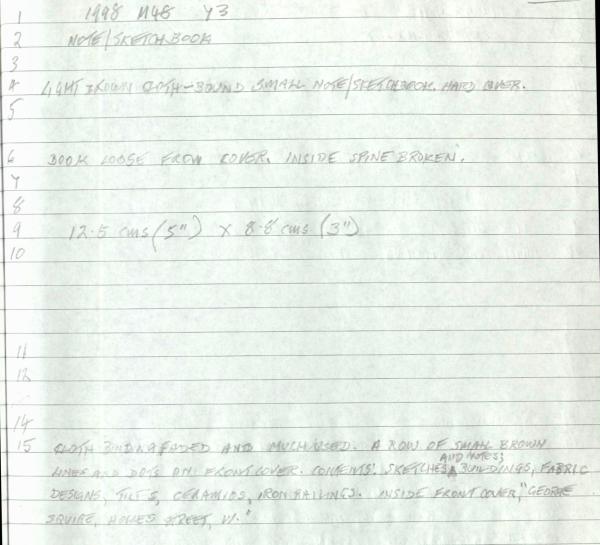 1 1998 M48 Y3
2 NOTE/SKETCHBOOK
3
4 LIGHT BROWN CLOTH-BOUND SMALL NOTE/SKETCHBOOK. HARD COVER.
5
6 BOOK LOOSE FROM COVER. INSIDE SPINE BROKEN.
7
8
9 12.5 cms (5") x 8.8 cms (3")
10
11
12
14
15 CLOTH BINDING FADED AND MUCH USED. A ROW OF SMALL BROWN
AND NOTES;
LINES AND DOTS ON FRONT COVER. CONTENTS: SKETCHES BUILDINGS, FABRIC
DESIGNS, TILES, CERAMICS, IRON RAILINGS. INSIDE FRONT COVER, "GEORGE
SQUIRE, HOLLES STREET, W."